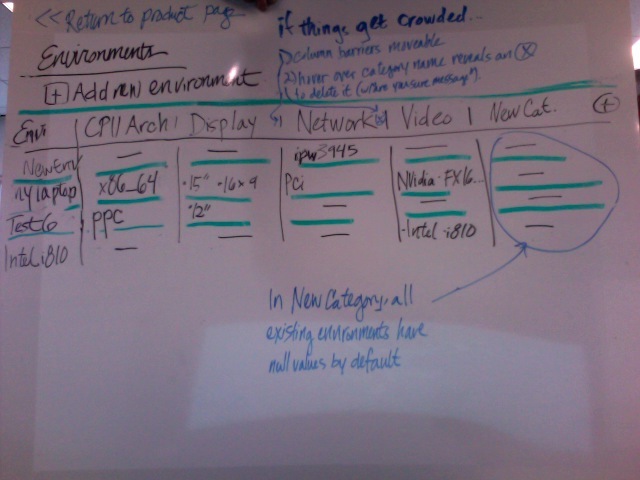 << Return to product page
if things get crowded...
1) column barriers moveable
(2) hover over category name reveals an (X)
to delete it (w/ are you sure message").
Environments
[+] Add new environment
Envi | CPU/Arch | Display | Network | Video | New Cat. (+)
New Env — — ipw3945 — —
my laptop x86_64 ·15" ·16x9 PCi NVidia·FX16... —
Test6 ppc ·12" — — —
Intel i810 — — — ·Intel·i810 —
In New Category, all
existing environments have
null values by default